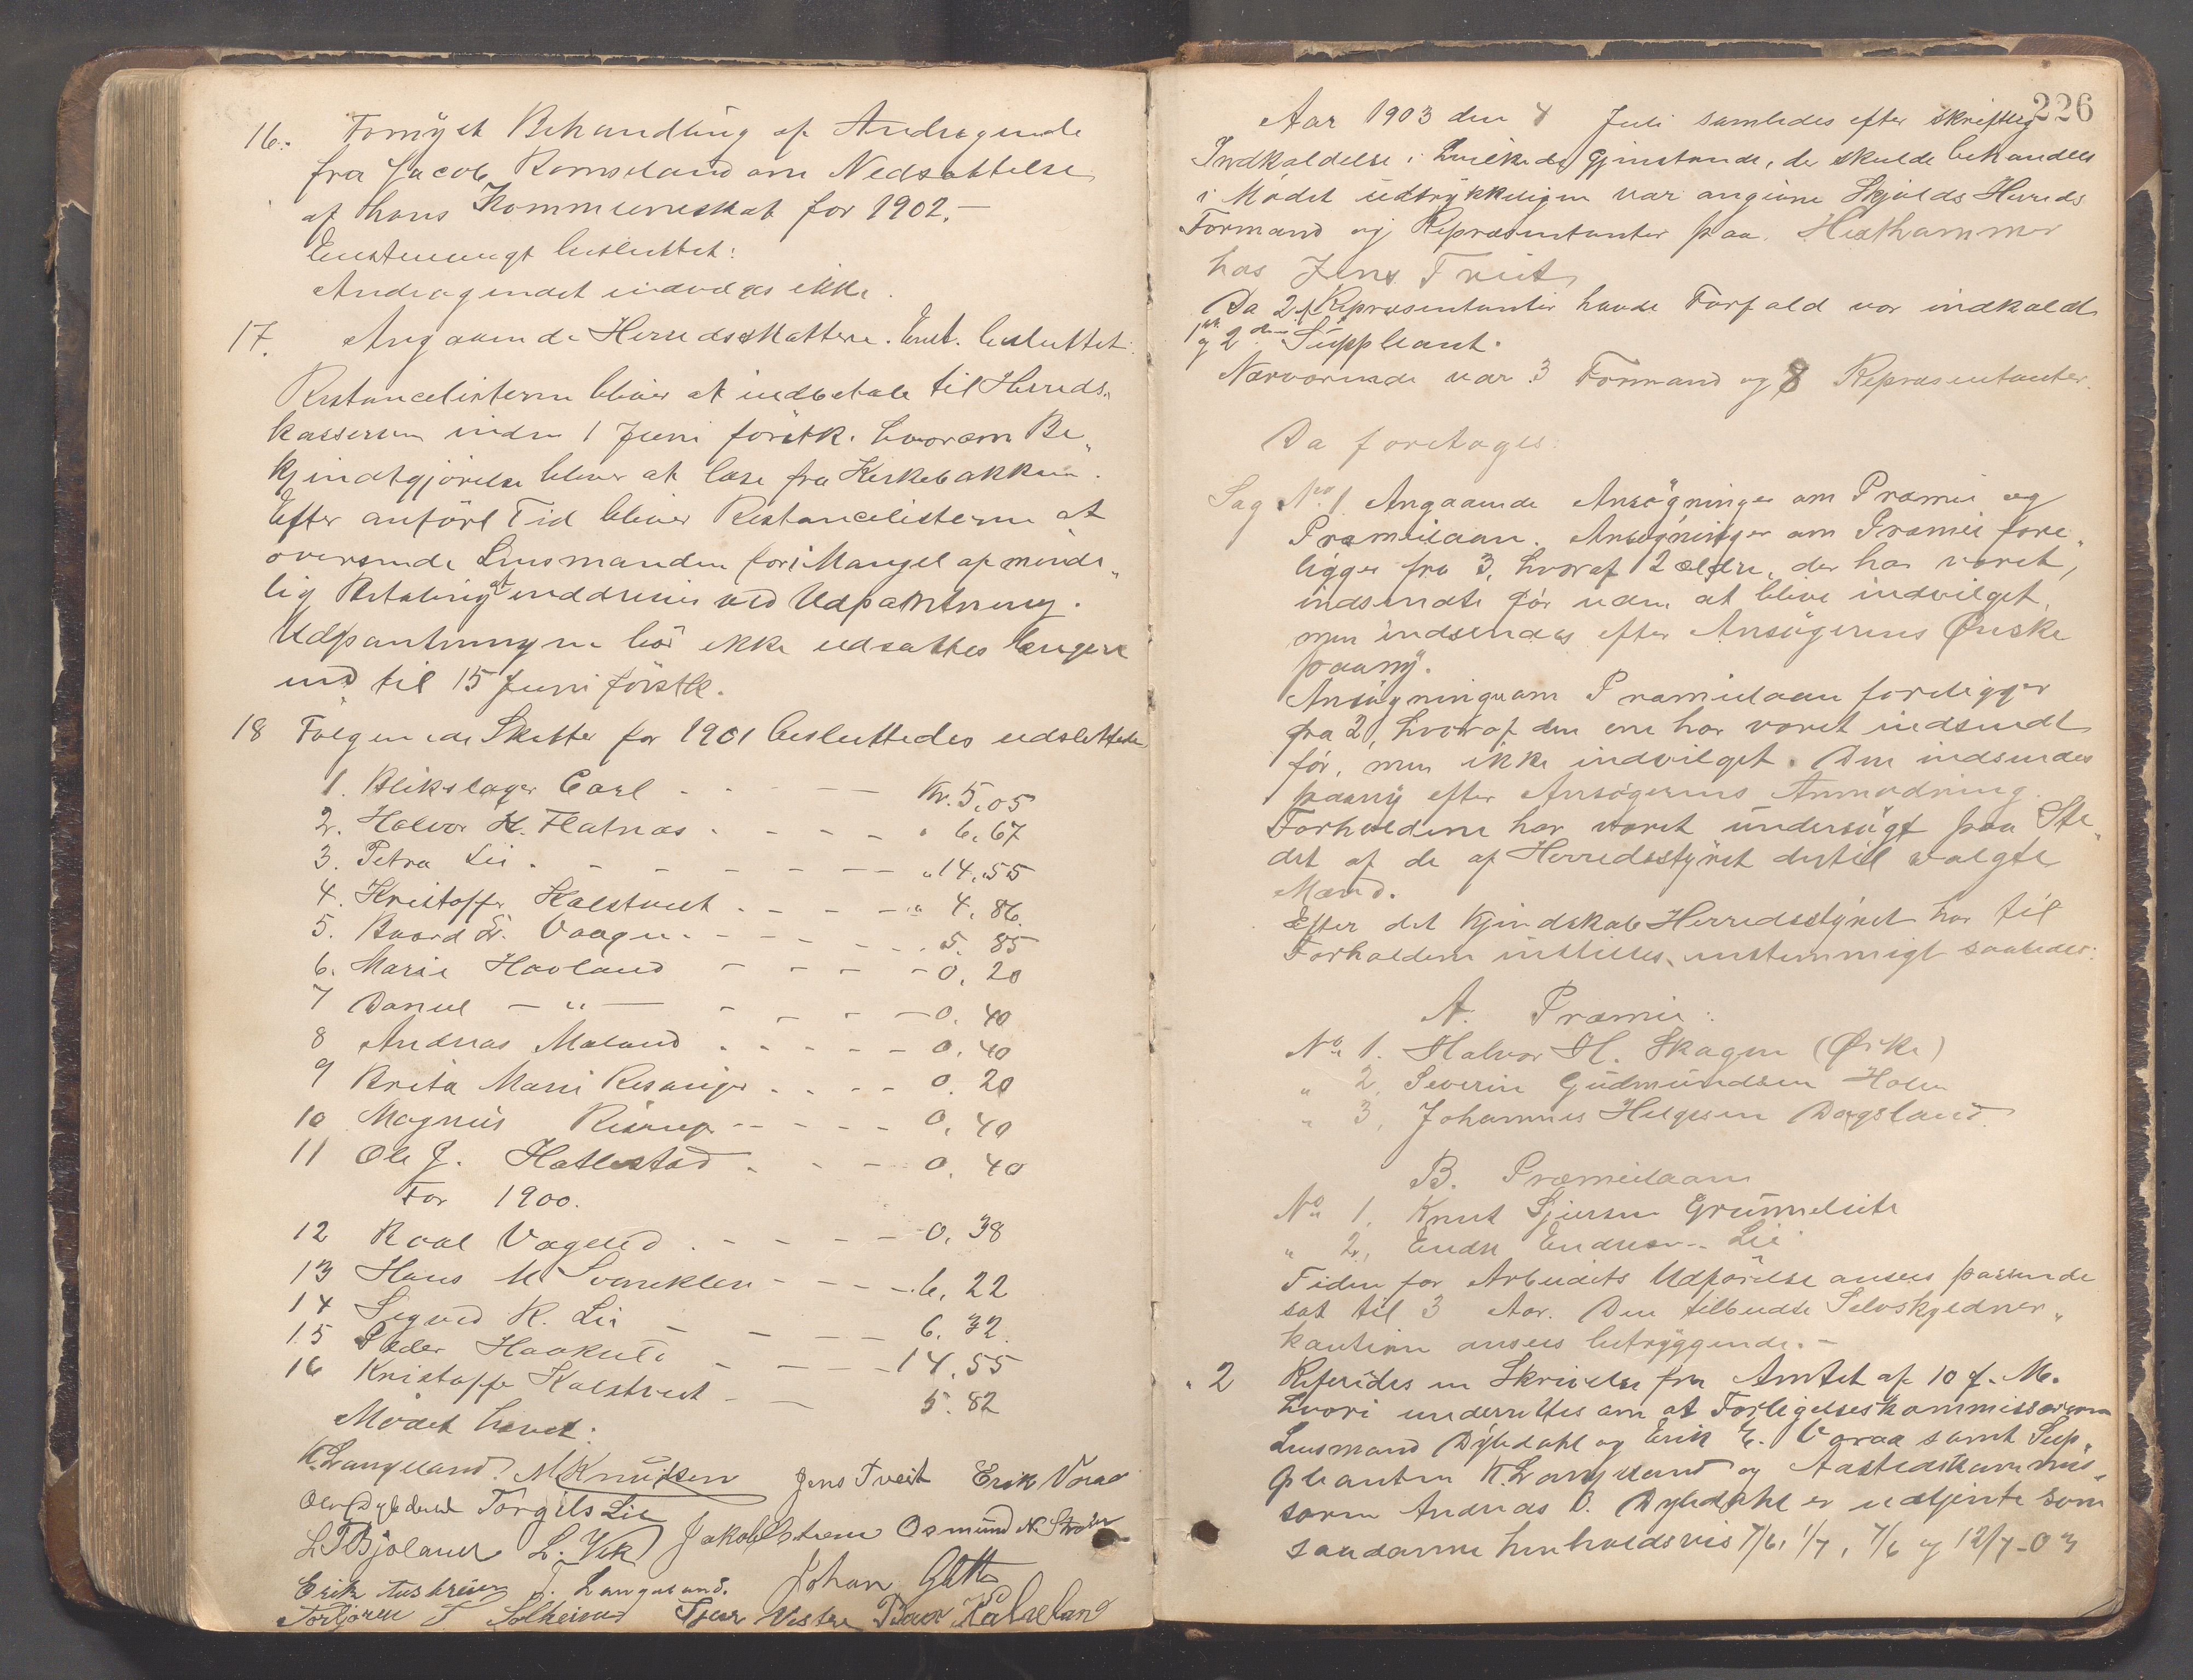 16. Fornyet Behandling af Andragende
fra Jacob Romseland om Nedsættelse
af hans Kommuneskat for 1902.-
Enstemmigt besluttet:
Andragendet indvilges ikke.
17. Angaaende Herredsskattene. Enst. besluttet:
Restancelisterne bliver at indbetale til Herreds„
kassereren inden 1 Juni førstk. hvorom Be„
kjendtgjørelse bliver at læse fra Kirkebakken.
Efter anført Tid bliver Restancelisterne at
oversende Lensmanden for i Mangel af minde„
lig Betaling at inddrives ved Udpantning.
Udpantningen bør ikke udsættes længere
end til 15 Juni førstk.
18 Følgende Skatter for 1901 besluttedes udslettede
1. Blikslager Carl - - - - Kr. 5,05
2. Halvor H. Flatnæs . - - - " 6,67
3. Petra Lie . - - - - - " 14,55
4. Kristoffer Kalstveit . - - - " 4,86
5. Baard Vaagen . - - - - 5. 85
6. Marie Havland - - - - 0. 20
7 Daniel — „ — - - - - 0. 40
8 Andreas Mæland . - - - - 0. 40
9 Brita Marie . - - - 0. 20
10 Magnus - - - - 0. 40
11 Ole J. Hatlestad . - - 0. 40
For 1900.
12 Vageled . - - - - 0. 38
13 Hans M - - - - 6. 22
14 Sigved K. Lie - - - - 6. 32
15 Peder - - - - 14. 55
16 Kristoffer Kalstveit - - 5. 82
Mødet hævet:
K. Langeland. M Knudsen Jens Tveit Erik Voraa
Torgils Lie
L T Bjoland L. Vik Jakob Osmund N.
Erik T. Langeland. Johan
Torbjøren T Solheim Vestre
226
Aar 1903 den 4 Juli samledes efter skriftlig
Indkaldelse i hvilken de Gjenstande, der skulde behandles
i Mødet udtrykkeligen var angivne Skjolds Herreds
Formænd og Repræsentanter paa
hos Jens Tveit
Da 2 Repræsentanter havde Forfald var indkaldt
1ste og 2den Suppleant.
Nærværende var 3 Formænd og 8 Repræsentanter.
Da foretoges:
Sag No 1. Angaaende Ansøgninger om Præmie og
Præmielaan. Ansøgninger om Præmie fore„
ligger fra 3, hvoraf 2 ældre, der har været
indsendte før uden at blive indvilget,
men indsendes efter Ansøgerens Ønske
paany.
Ansøgninger om Præmielaan foreligger
fra 2, hvoraf den ene har været indsendt
før, men ikke indvilget. Den indsendes
paany efter Ansøgerens Anmodning.
Forholdene har været undersøgt paa Ste„
det af de af Herredsstyret dertil valgte
Mænd.
Efter det Kjendskab Herredsstyret har til
Forholdene indstilles enstemmigt saaledes:
A. Præmie:
No 1. Halvor H. Skagen (Ørke)
" 2, Severin Gudmundsen Holen
" 3, Johannes Helgesen Dagsland.
B. Præmielaan
No 1, Knut Grunneleite
" 2, Endre Endresen Lie
Tiden for Arbeidets Udførelse ansees passende
sat til 3 Aar. Den tilbudte Selvskyldner„
kaution ansees betryggende.-
" 2 Refererides en Skrivelse fra Amtet af 10 f. M.
hvori underrettes om at Forligelseskommissærerne
Lensmand Dybdahl og Erik E. Voraa samt Sup„
pleanten K. Langeland og Aastedskommis„
særen Andreas O. Dybdahl er udtjente som
saadanne henholdsvis 7/6, 1/7, 7/6 og 12/7-03